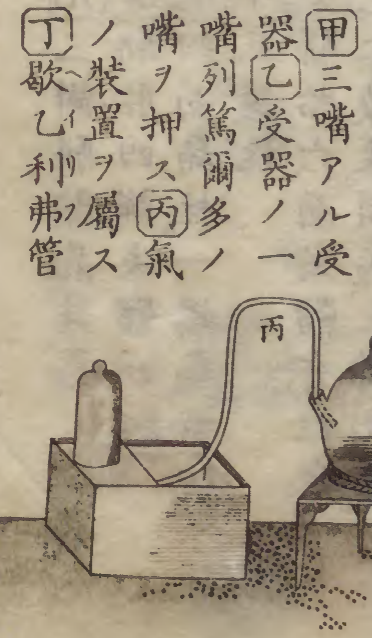 甲三嘴アル受
器乙受器ノ一
嘴列篤爾多ノ
嘴ヲ押ス丙氣
ノ装置ヲ屬ス
丁歇乙利弗管
ヘイリフ
丙